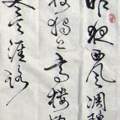 昨夜西風凋碧
樹獨上高樓望
盡天涯路